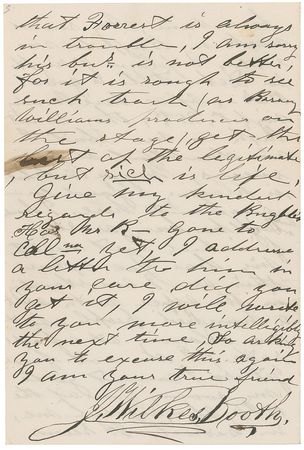 that Forrest is always
in trouble, I am sorry
his bus. is not better,
for it is rough to see
such trash, (as Barney
Williams produces on
the stage) get the
best of the legitimate
, but sich is life,
Give my kindest
regards to the
Has Mr R— gone to
Cal yet, I address
a letter to him in
your care did you
get it, I will write
to you more intelligibly
the next time to ask
you to excuse this again
I am your true friend
J. Wilkes Booth,